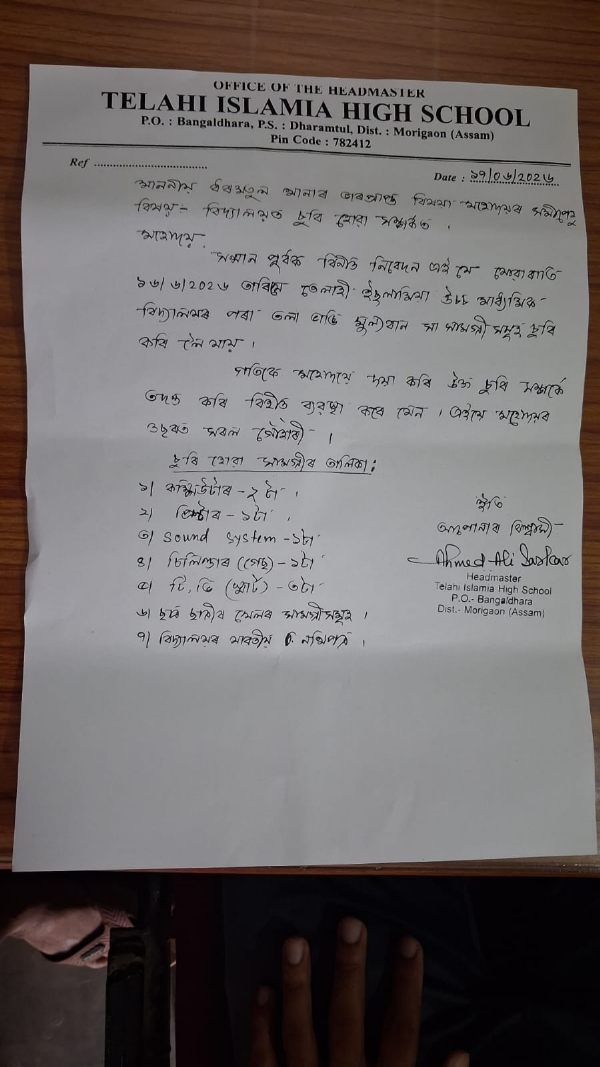 OFFICE OF THE HEADMASTER
TELAHI ISLAMIA HIGH SCHOOL
P.O. : Bangaldhara, P.S. : Dharamtul, Dist. : Morigaon (Assam)
Pin Code : 782412
Ref ..................................
Date : ১৭/০৬/২০২৬
মাননীয় ধৰমতুল থানাৰ ভাৰপ্ৰাপ্ত বিষয়া মহোদয়ৰ সমীপেষু
বিষয়:- বিদ্যালয়ত চুৰি হোৱা সম্পৰ্কত ।
মহোদয়,
সন্মান পূৰ্বক বিনীত নিবেদন এই যে যোৱাৰাতি
১৬/৬/২০২৬ তাৰিখে তেলাহী ইছলামিয়া উচ্চ মাধ্যমিক
বিদ্যালয়ৰ পৰা তলা ভাঙি মূল্যবান সা সামগ্ৰী সমূহ চুৰি
কৰি লৈ যায় ।
গতিকে মহোদয়ে দয়া কৰি উক্ত চুৰি সম্পৰ্কে
তদন্ত কৰি বিহীত ব্যৱস্থা কৰে যেন । এইয়ে মহোদয়ৰ
ওচৰত সৰল গোঁহাৰী ।
চুৰি হোৱা সামগ্ৰীৰ তালিকা :
১| কম্পিউটাৰ - ২ টা ।
২| প্ৰিন্টাৰ - ১টা ।
৩| Sound System - ১টা
৪| চিলিন্ডাৰ (গেছ) - ১টা
৫| টি, ভি (স্মাৰ্ট) - ৩টা
৬| ছাত্ৰ ছাত্ৰীৰ খেলৰ সামগ্ৰীসমূহ ।
৭| বিদ্যালয়ৰ যাৱতীয় নথিপত্ৰ ।
ইতি
আপোনাৰ বিশ্বাসী
Ahmed Ali Sarkar
Headmaster
Telahi Islamia High School
P.O.- Bangaldhara
Dist.- Morigaon (Assam)